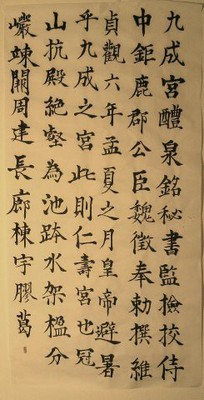 九成宮醴泉銘秘書監撿挍侍
中鉅鹿郡公臣魏徵奉勅撰維
貞觀六年孟夏之月皇帝避暑
乎九成之宮此則仁壽宮也冠
山抗殿絕壑為池跨水架楹分
巖竦闕周建長廊棟宇膠葛